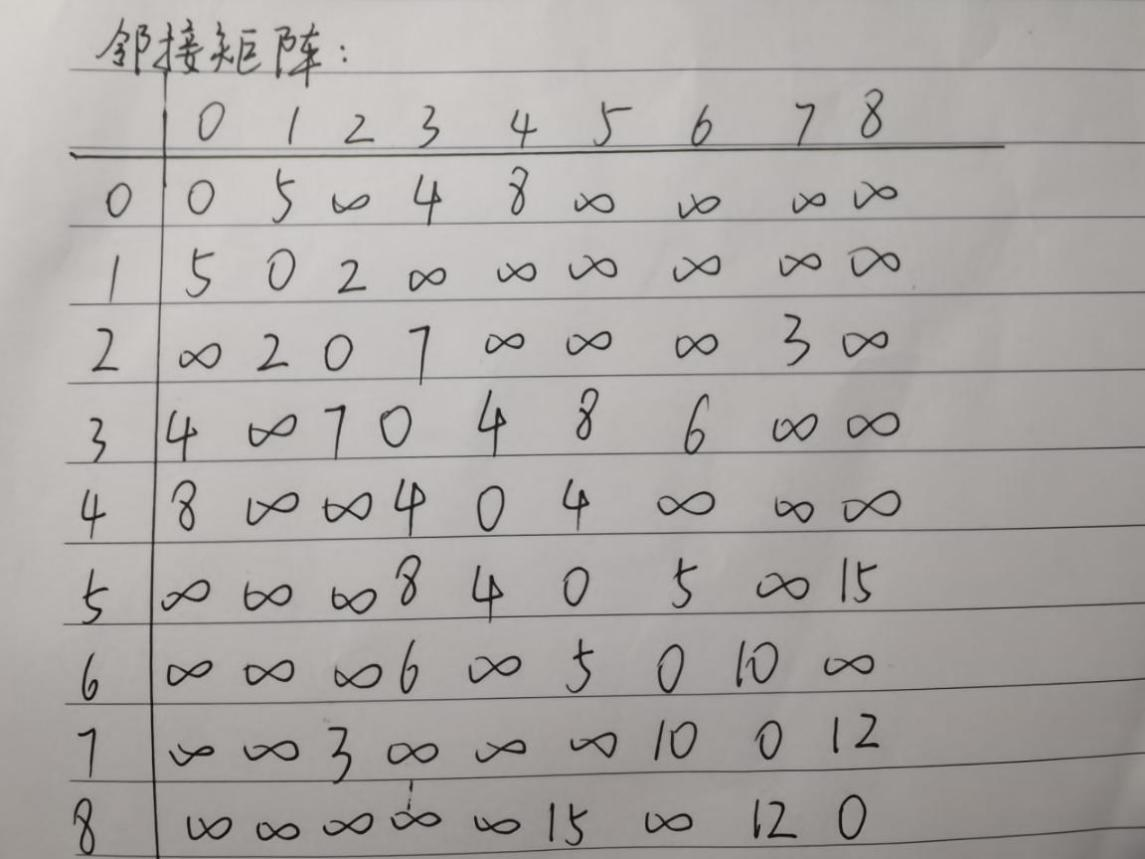 邻接矩阵:
0 1 2 3 4 5 6 7 8
0 0 5 ∞ 4 8 ∞ ∞ ∞ ∞
1 5 0 2 ∞ ∞ ∞ ∞ ∞ ∞
2 ∞ 2 0 7 ∞ ∞ ∞ 3 ∞
3 4 ∞ 7 0 4 8 6 ∞ ∞
4 8 ∞ ∞ 4 0 4 ∞ ∞ ∞
5 ∞ ∞ ∞ 8 4 0 5 ∞ 15
6 ∞ ∞ ∞ 6 ∞ 5 0 10 ∞
7 ∞ ∞ 3 ∞ ∞ ∞ 10 0 12
8 ∞ ∞ ∞ ∞ ∞ 15 ∞ 12 0